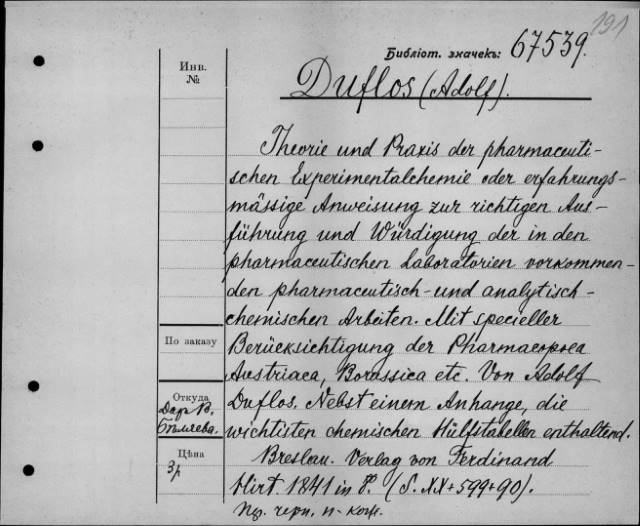 191
Библіот. значекъ: 67539.
Инв. №
Duflos (Adolf).
Theorie und Praxis der pharmaceuti-
schen Experimentalchemie oder erfahrungs-
mässige Anweisung zur richtigen Aus-
führung und Würdigung der in den
pharmaceutischen Laboratorien vorkommen-
den pharmaceutisch- und analytisch-
chemischen Arbeiten. Mit specieller
По заказу
Berücksichtigung der Pharmacopoea
Austriaca, Borassica etc. Von Adolf
Откуда
Даръ В.
Бѣляева.
Duflos. Nebst einem Anhange, die
wichtisten chemischen Hülfstabellen enthaltend.
Цѣна
3р
Breslau. Verlag von Ferdinand
Hirt. 1841 in 8. (S. XX+599+90).
черн. п- кож.